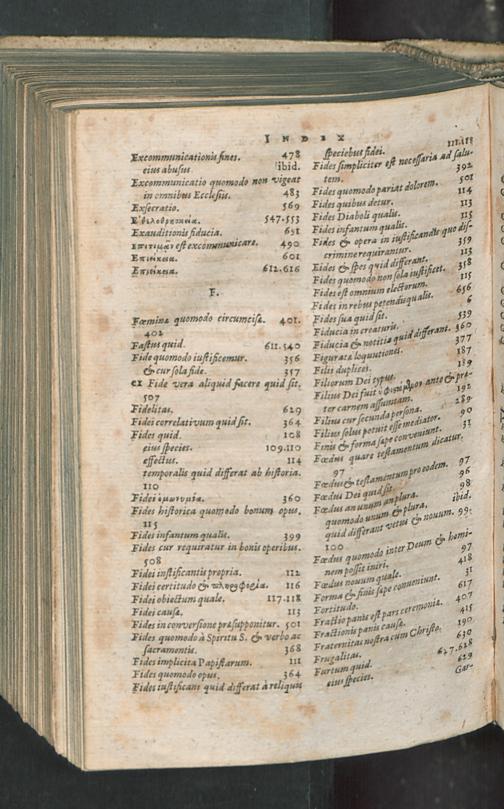 INDEX
Excommunicationis fines. 478
eius abusus ibid.
Excommunicatio quomodo non vigeat
in omnibus Ecclesiis. 483
Exsecratio. 569
Ἐθελοθρησκεία. 547.553
Exauditionis fiducia. 691
Ἐπιτιμᾶν est excommunicare. 490
Ἐπιείκεια. 601
Ἐπιείκεια. 612.616
F.
Fœminæ quomodo circumcisæ. 401.
402
Fastus quid. 611.540
Fide quomodo iustificemur. 356
& cur sola fide. 357
ex Fide vera aliquid facere quid sit.
507
Fidelitas. 629
Fidei correlativum quid sit. 364
Fides quid. 108
eius species. 109.110
effectus. 114
temporalis quid differat ab historia.
110
Fidei ὁμωνυμία. 360
Fides historica quomodo bonum opus.
115
Fides infantum qualis. 399
Fides cur requiratur in bonis operibus.
508
Fidei iustificantis propria. 112
Fidei certitudo & πληροφορία. 116
Fidei obiectum quale. 117.118
Fidei causæ. 113
Fides in conversione præsupponitur. 501
Fides quomodo à Spiritu S. & verbo ac
sacramentis. 368
Fides implicita Papistarum. 111
Fides quomodo opus. 364
Fides iustificans quid differat à reliquis
speciebus fidei. 111.118
Fides simpliciter est necessaria ad salu-
tem. 392
Fides quomodo pariat dolorem. 501
Fides quibus detur. 114
Fides Diaboli qualis. 113
Fides infantum qualis. 115
Fides & opera in iustificando quo dis-
crimine requirantur. 359
Fides & spes quid differant. 113
Fides quomodo non sola iustificet. 358
Fides est omnium electorum. 115
Fides in rebus petendis qualis. 656
Fides sua quid sit. 6
Fiducia in creaturis. 539
Fiducia & notitia quid differant. 360
Figurata loquutiones. 377
Filii duplices. 187
Filiorum Dei typus. 189
Filius Dei fuit ante & præ-
ter carnem assumtam. 192
Filius cur secunda persona. 289
Filius solus potuit esse mediator. 90
Finis & forma sæpe conveniunt. 31
Fœdus quare testamentum dicatur.
97
Fœdus & testamentum pro eodem. 97
Fœdus Dei quid sit. 96
Fœdus an unum an plura. 98
quomodo unum & plura. ibid.
quid differant vetus & novum. 99.
100
Fœdus quomodo inter Deum & homi-
nem possit iniri. 97
Fœdus novum quale. 418
Forma & finis sæpe conveniunt. 31
Fortitudo. 617
Fractio panis est pars ceremoniæ. 407
Fractionis panis causæ. 415
Fraternitas nostra cum Christo. 190
Frugalitas. 630
Furtum quid. 627.628
eius species. 629
Gar-